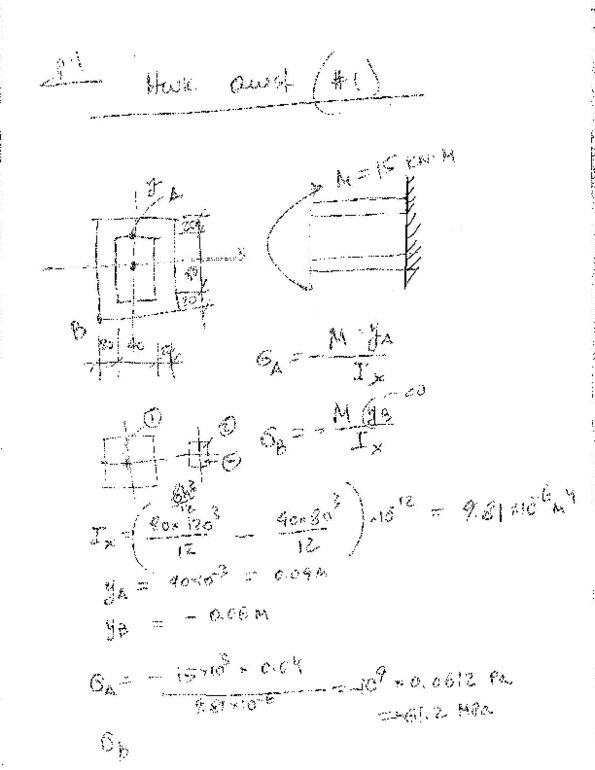 p.1
Hwk Quest (#1)
M = 15 KN·M
y
A
20
80
20
B
20 40 20
σA = - M · yA / Ix
① ②
σB = - M yB / Ix
<0
bh³/12
Ix = (80×120³/12 - 40×80³/12) × 10⁻¹² = 9.81×10⁻⁶ M⁴
yA = 40×10⁻³ = 0.04M
yB = - 0.06M
σA = - 15×10³ × 0.04 / 9.81×10⁻⁶ = -10⁹ × 0.0612 Pa
= -61.2 MPa
σb